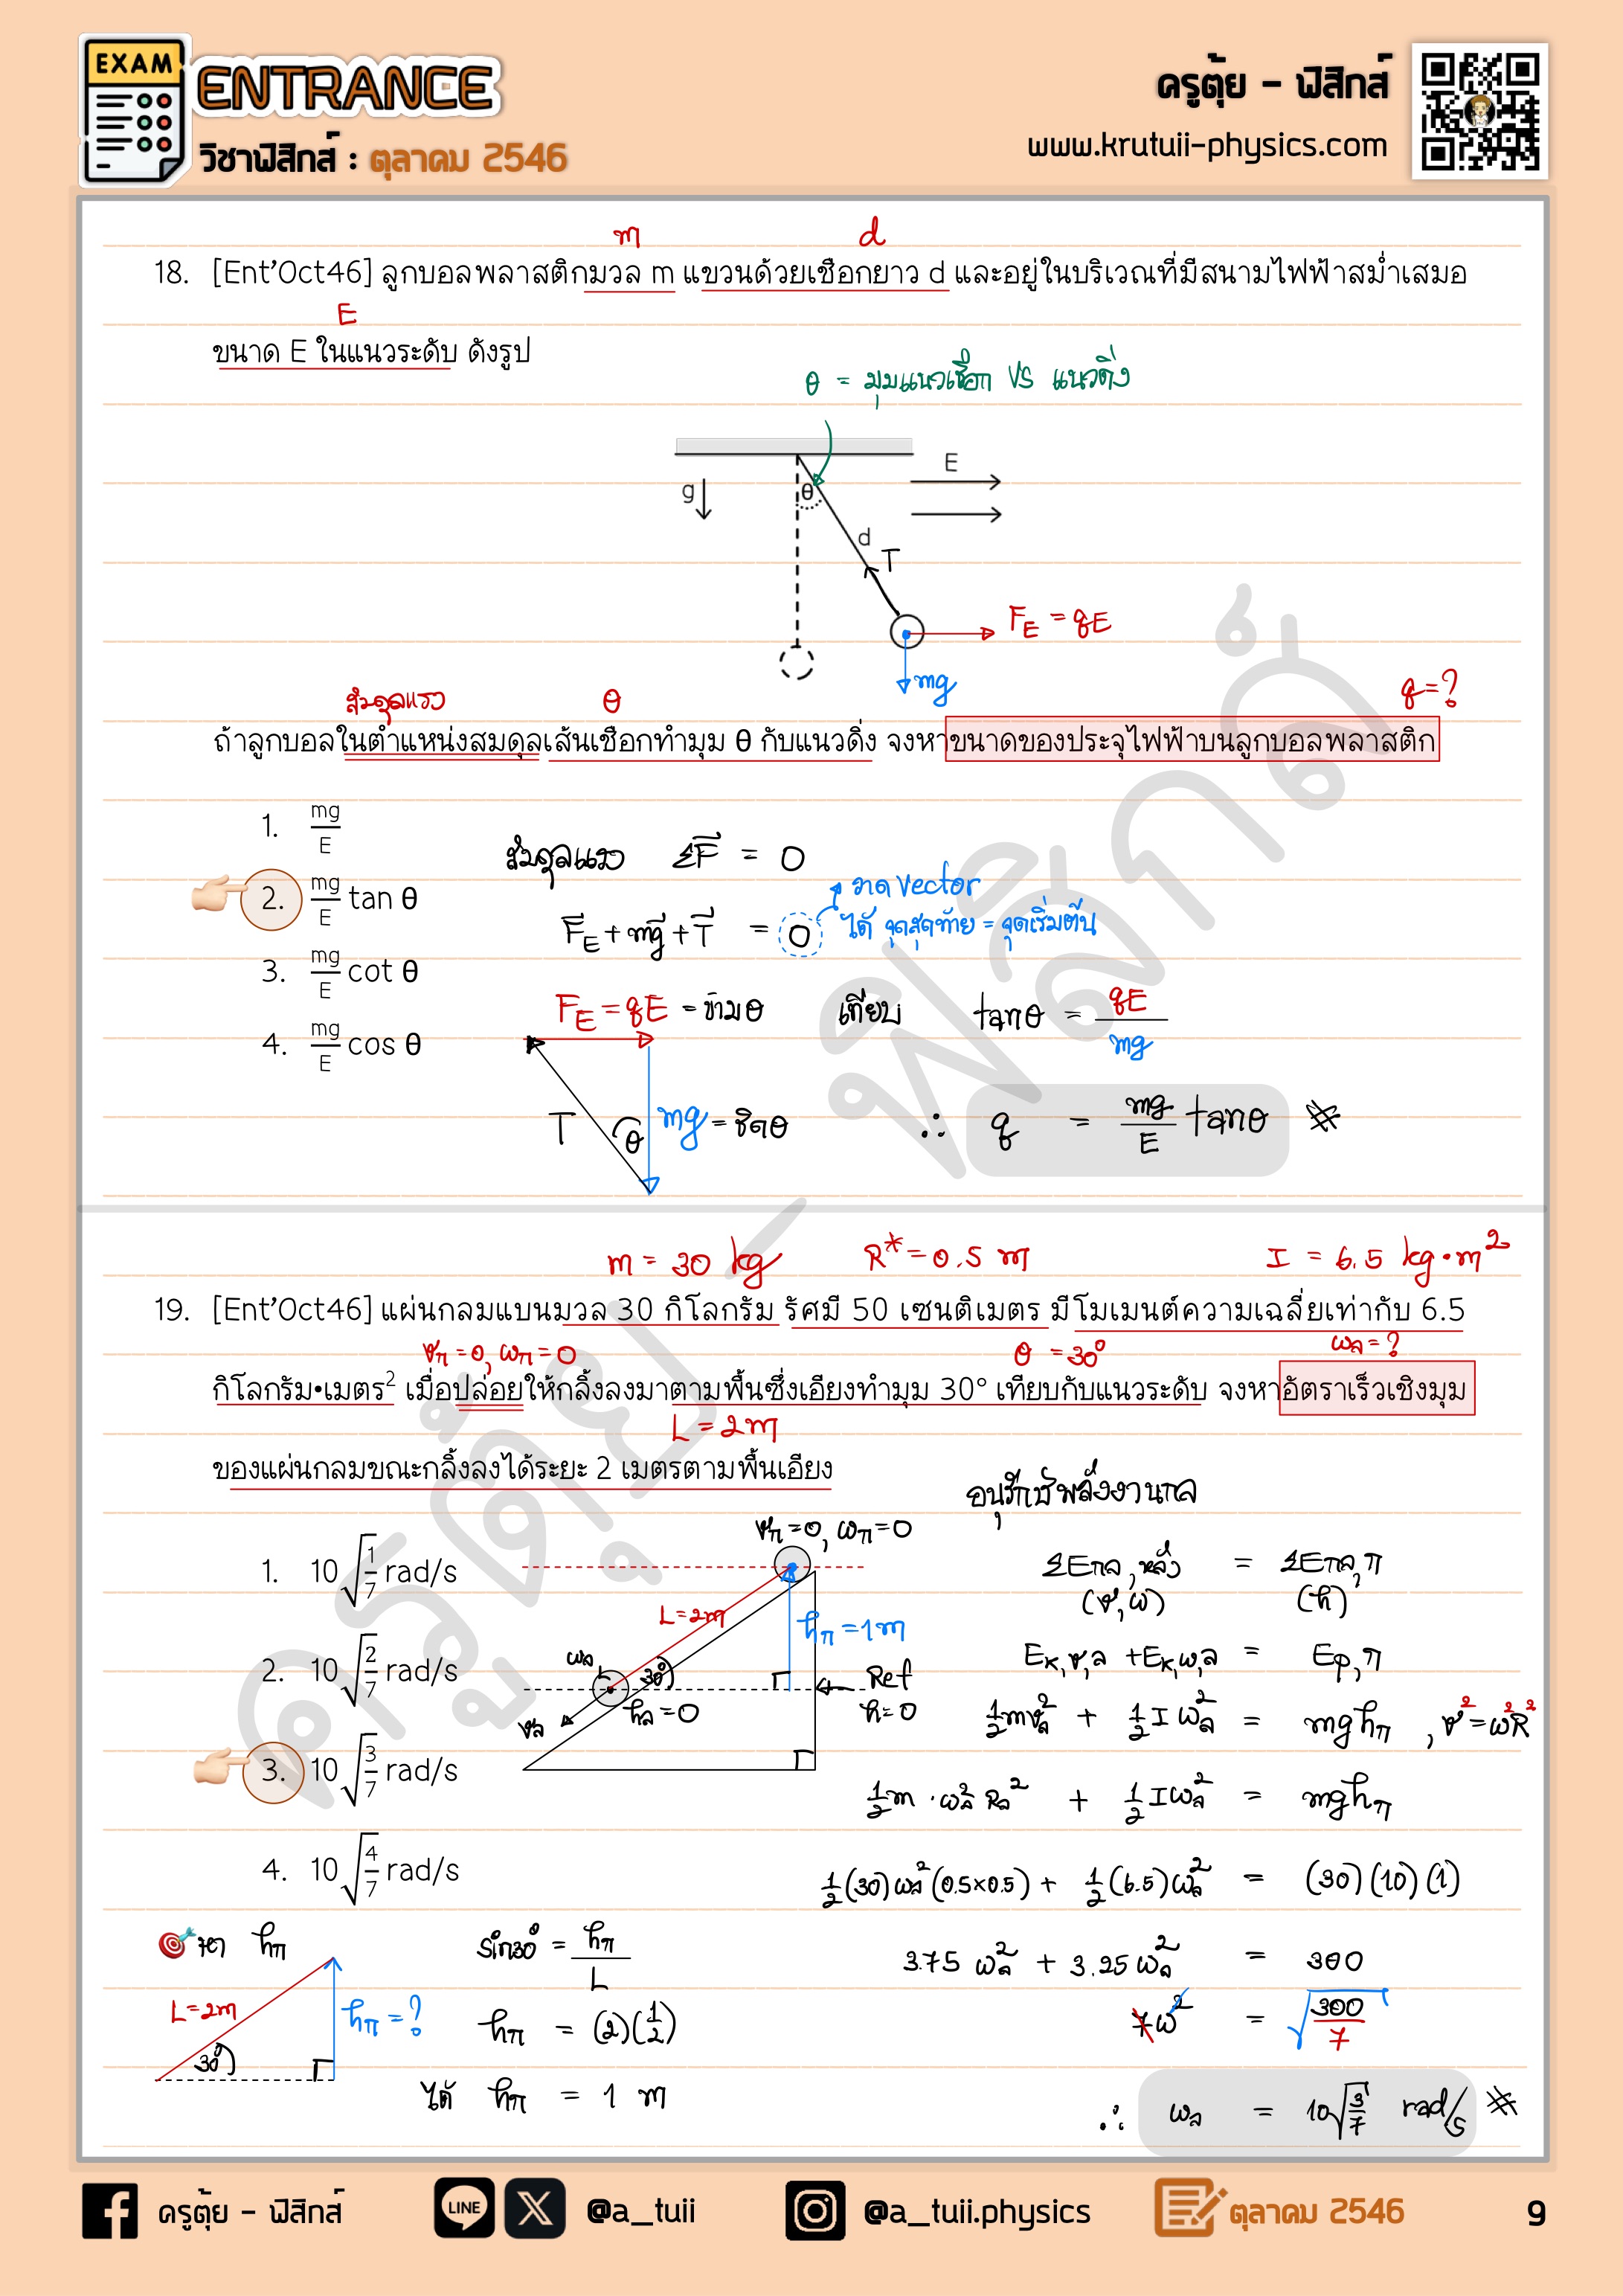 EXAM
ENTRANCE
วิชาฟิสิกส์ : ตุลาคม 2546
ครูตุ้ย - ฟิสิกส์
www.krutuii-physics.com
m d
18. [Ent'Oct46] ลูกบอลพลาสติกมวล m แขวนด้วยเชือกยาว d และอยู่ในบริเวณที่มีสนามไฟฟ้าสม่ำเสมอ
E
ขนาด E ในแนวระดับ ดังรูป
θ = มุมแนวเชือก VS แนวดิ่ง
E
g
θ
d
T
F_E = qE
mg
สมดุลแรง θ q=?
ถ้าลูกบอลในตำแหน่งสมดุลเส้นเชือกทำมุม θ กับแนวดิ่ง จงหาขนาดของประจุไฟฟ้าบนลูกบอลพลาสติก
1. mg/E
2. mg/E tan θ
3. mg/E cot θ
4. mg/E cos θ
สมดุลแรง ΣF = 0
วาด vector
F_E + mg + T = 0 ได้ จุดสุดท้าย = จุดเริ่มต้น
F_E = qE = ข้าม θ เทียบ tanθ = qE/mg
T θ mg = ชิด θ ∴ q = mg/E tanθ
m = 30 kg R* = 0.5 m I = 6.5 kg·m²
19. [Ent'Oct46] แผ่นกลมแบนมวล 30 กิโลกรัม รัศมี 50 เซนติเมตร มีโมเมนต์ความเฉลี่ยเท่ากับ 6.5
vก = 0, ωก = 0 θ = 30° ωล = ?
กิโลกรัม•เมตร² เมื่อปล่อยให้กลิ้งลงมาตามพื้นซึ่งเอียงทำมุม 30° เทียบกับแนวระดับ จงหาอัตราเร็วเชิงมุม
L = 2m
ของแผ่นกลมขณะกลิ้งลงได้ระยะ 2 เมตรตามพื้นเอียง
อนุรักษ์พลังงานกล
1. 10√(1/7) rad/s
2. 10√(2/7) rad/s
3. 10√(3/7) rad/s
4. 10√(4/7) rad/s
vก = 0, ωก = 0
L = 2m
hก = 1m
ωล
30°
Ref
h = 0
hล = 0
vล
ΣEกล,หลัง = ΣEกล,ก
(v, ω) (h)
Ek,v,ล + Ek,ω,ล = Ep,ก
½mvล² + ½Iωล² = mghก , v² = ω²R²
½m·ωล²Rล² + ½Iωล² = mghก
½(30)ωล²(0.5×0.5) + ½(6.5)ωล² = (30)(10)(1)
3.75 ωล² + 3.25 ωล² = 300
7ω² = √(300/7)
∴ ωล = 10√(3/7) rad/s
หา hก
L = 2m
hก = ?
30°
sin30° = hก/L
hก = (2)(½)
ได้ hก = 1 m
ครูตุ้ย - ฟิสิกส์
ครูตุ้ย - ฟิสิกส์
LINE
@a_tuii
@a_tuii.physics
ตุลาคม 2546
9